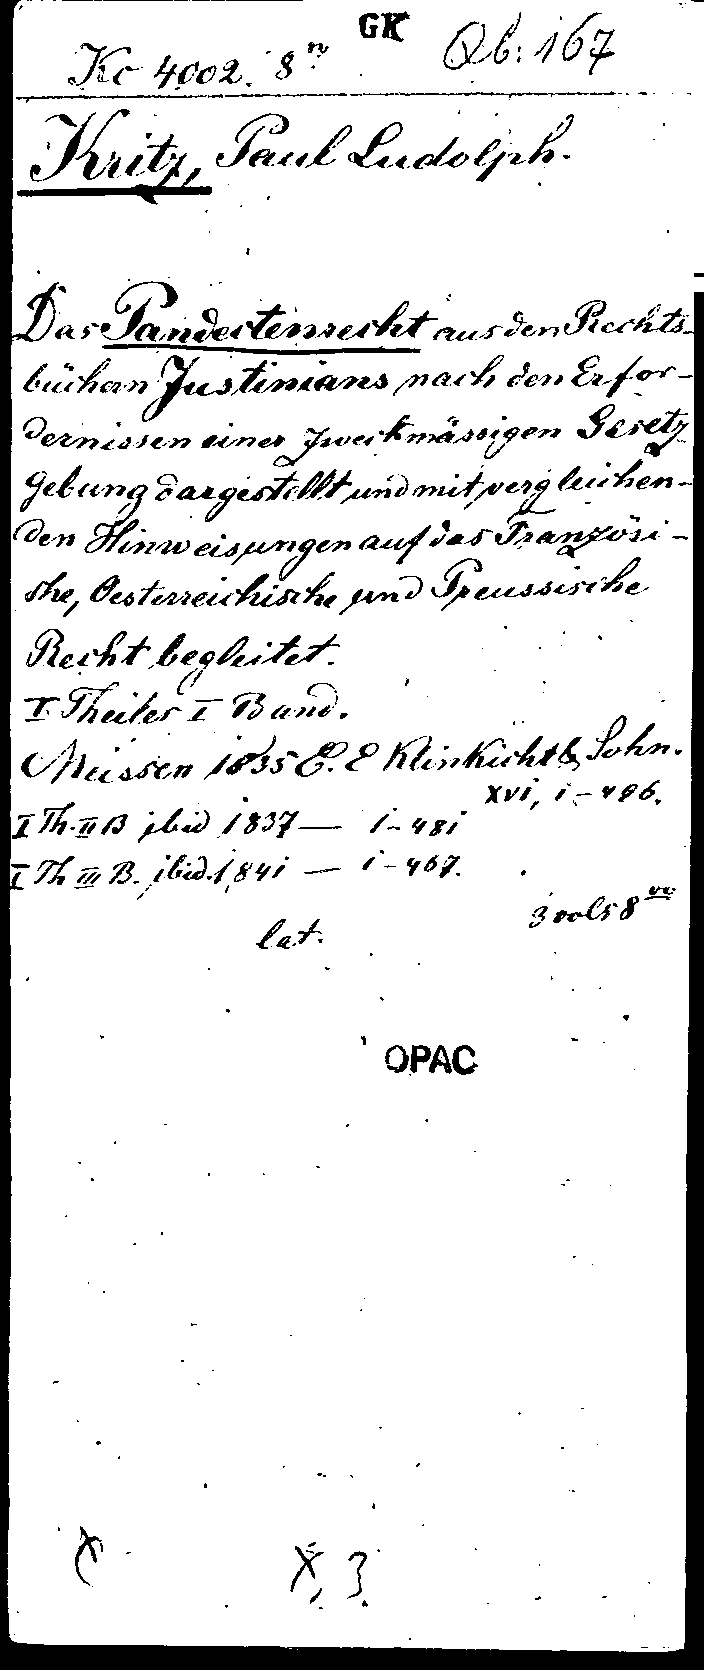 GK
Kc 4002. 8n Qb: 167
Kritz, Paul Ludolph.
Das Pandectenrecht aus den Rechts-
büchern Justinians nach den Erfor-
dernissen einer zweckmässigen Gesetz
gebung dargestellt und mit vergleichen-
den Hinweisungen auf das Französi-
sche, Oesterreichische und Preussische
Recht begleitet.
I Theiles I Band.
Meissen 1835 C. E Klinkicht & Sohn.
XVI, 1-496.
I Th. II B ibid 1837 — 1-481
I Th III B. ibid. 1841 — 1-467.
3 vols 8vo
lat.
OPAC
X, 3